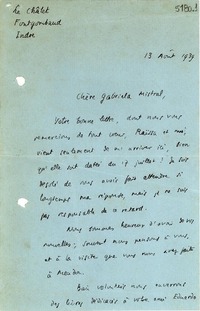 Le Châlet
Fontgombaud
Indre
5180.1
13 Août 1939
Chère Gabriela Mistral,
Votre bonne lettre, dont nous vous
remercions de tout cœur, Raïssa et moi,
vient seulement de m'arriver ici, bien
qu'elle soit datée du 17 juillet ! Je suis
désolé de vous avoir fait attendre si
longtemps ma réponse, mais je ne suis
pas responsable de ce retard.
Nous sommes heureux d'avoir de vos
nouvelles; souvent nous pensons à vous,
et à la visite que vous nous avez faite
à Meudon.
Bien volontiers nous enverrons
des livres dédicacés à votre ami Eduardo